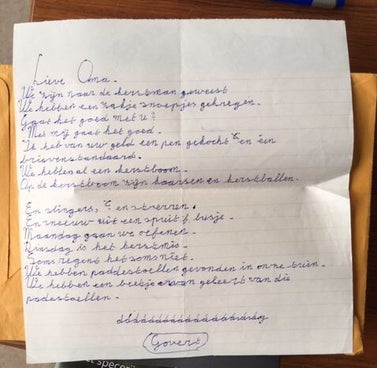 Lieve Oma.
We zijn naar de kerstman geweest
We hebben een zakje snoepjes gekregen.
Gaat het goed met u?
Met mij gaat het goed.
Ik heb van uw geld een pen gekocht & een
brievenstandaard.
We hebben al een kerstboom.
Op de kerstboom zijn kaarsen en kerstballen.
En slingers, & en sterren.
En sneeuw uit een spuit busje.
Maandag gaan we oefenen.
Dinsdag is het kerstmis.
Soms regent het soms niet.
We hebben paddestoellen gevonden in onze tuin.
We hebben een beetje geleert van die
padestoellen.
Govert